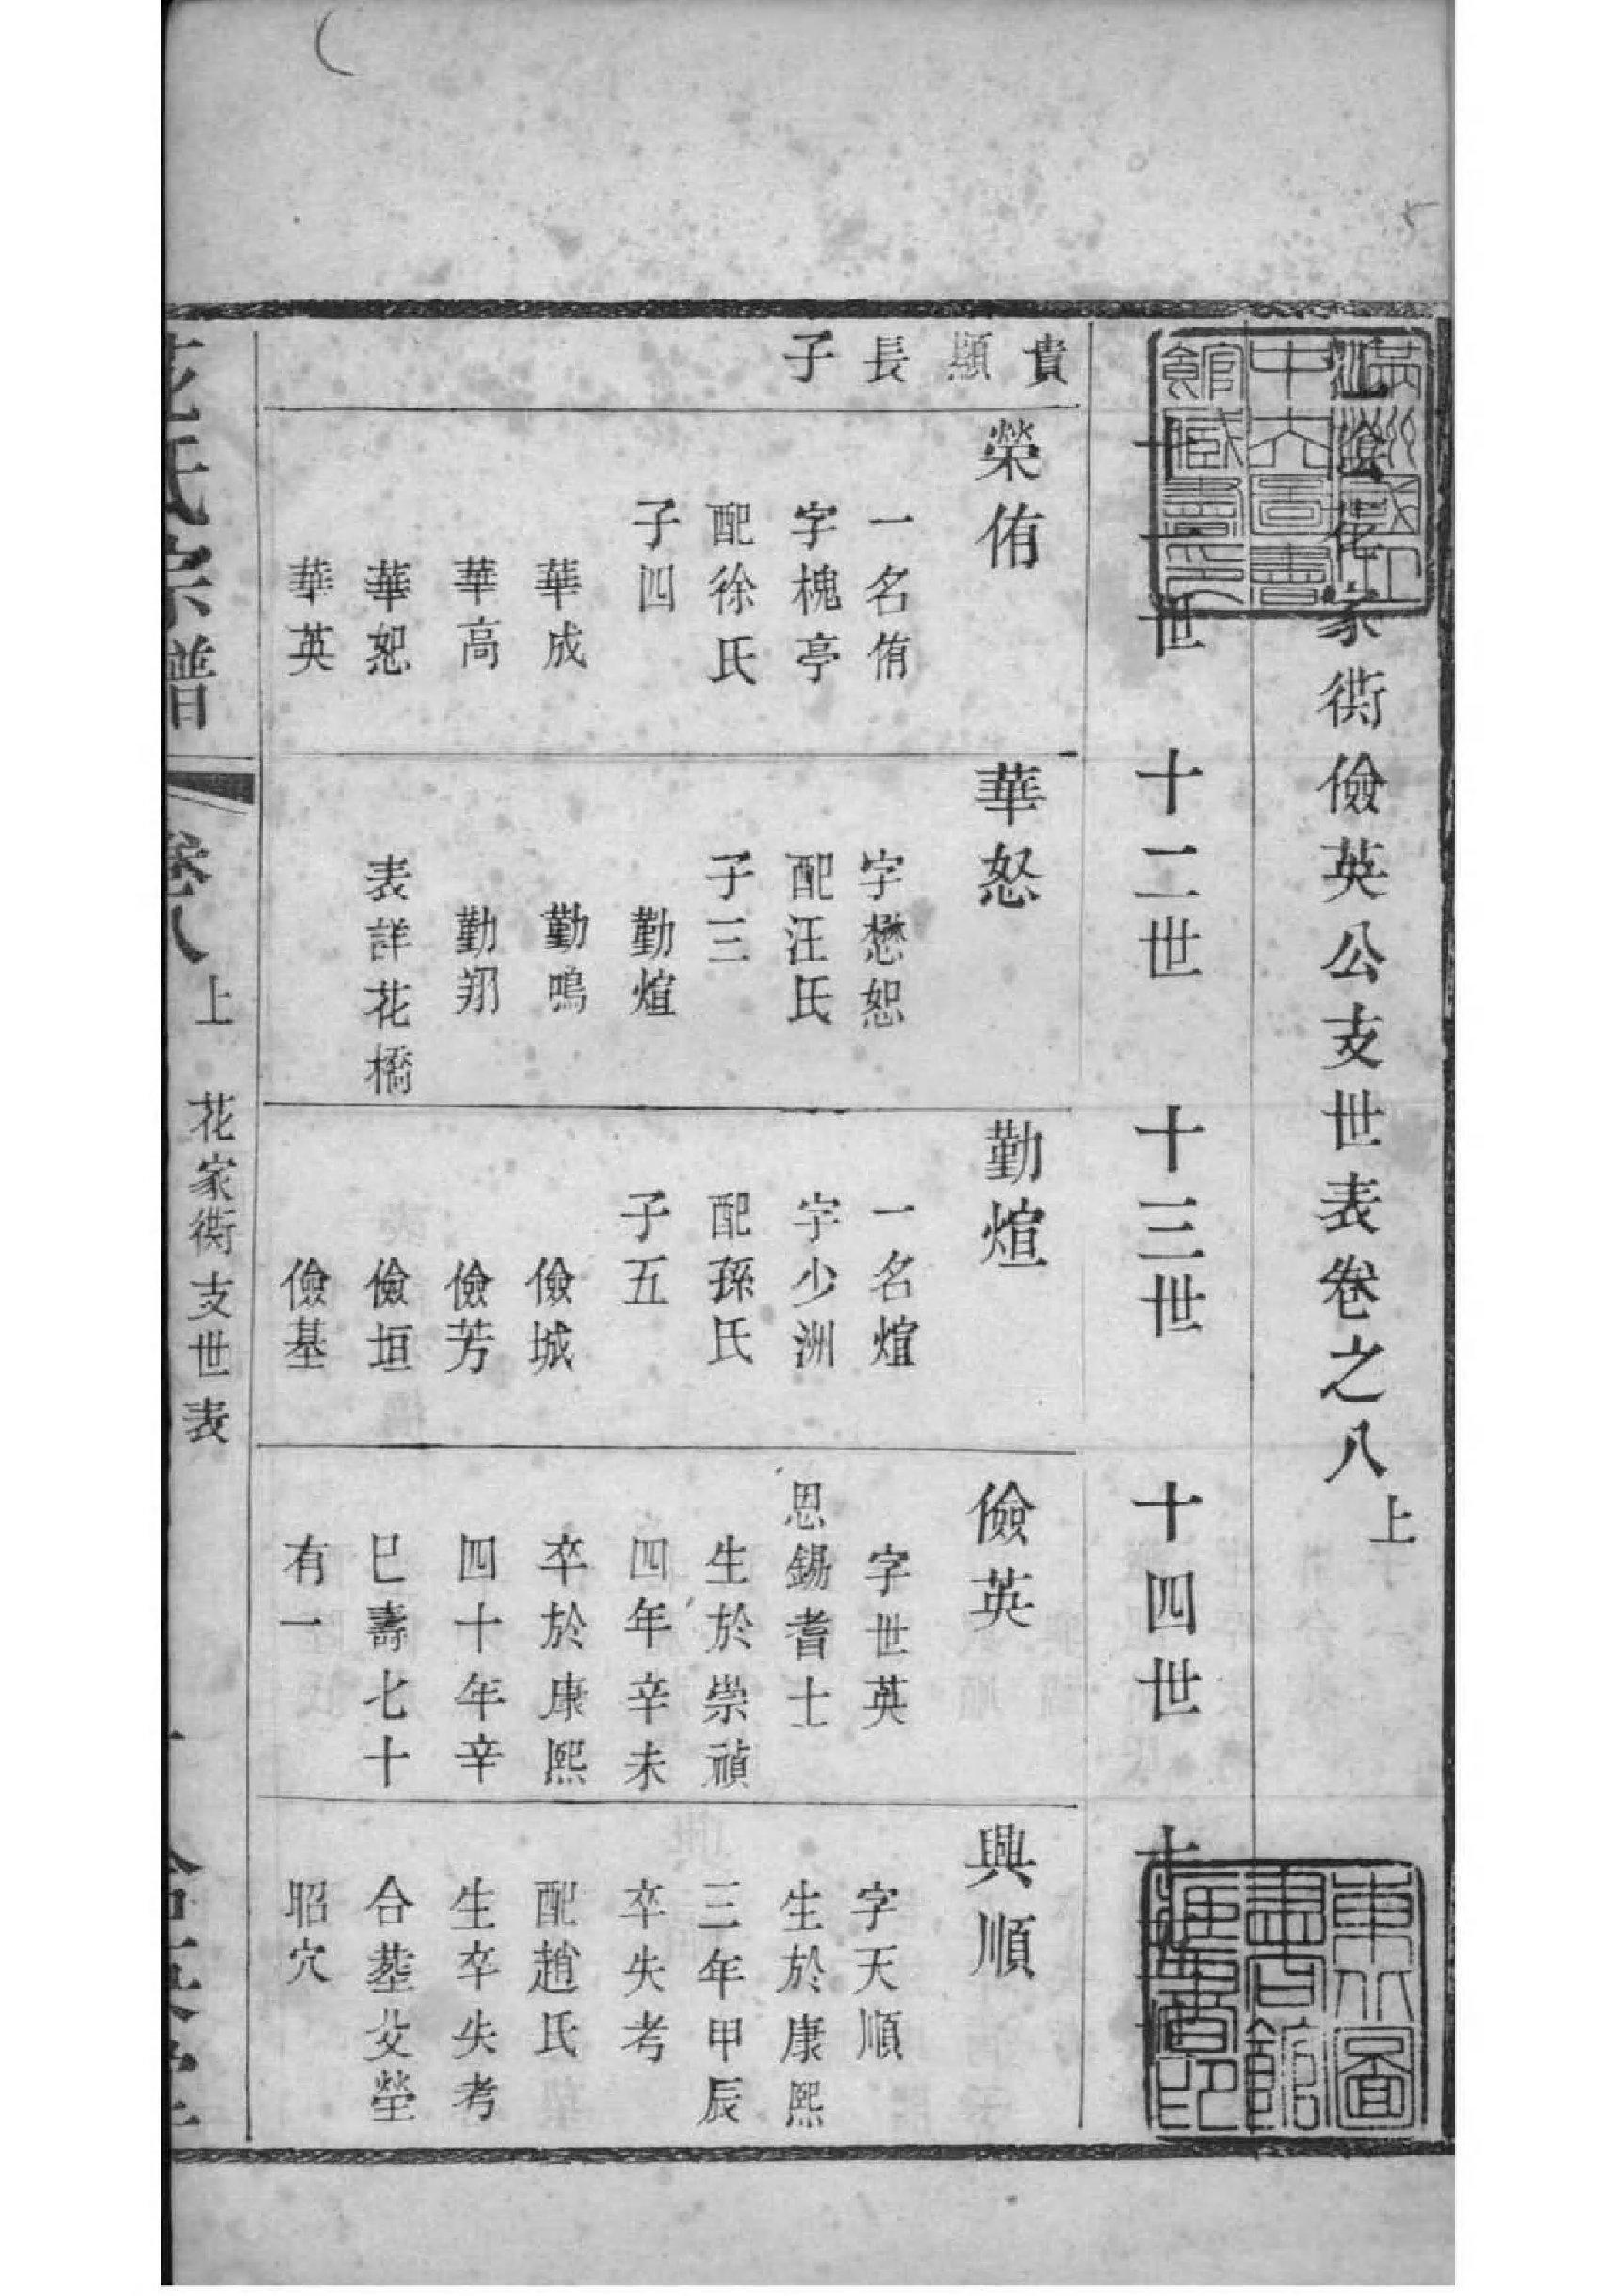 江陰花家衖儉英公支世表卷之八上
十一世
十二世
十三世
十四世
十五世
貴
顯
長
子
榮侑
一名侑
字槐亭
配徐氏
子四
華成
華高
華恕
華英
華恕
字懋恕
配汪氏
子三
勤煊
勤鳴
勤翔
表詳花橋
勤煊
一名煊
字少洲
配孫氏
子五
儉城
儉芳
儉垣
儉基
儉英
字世英
恩錫耆士
生於崇禎
四年辛未
卒於康熙
四十年辛
巳壽七十
有一
興順
字天順
生於康熙
三年甲辰
卒失考
配趙氏
生卒失考
合塟父塋
昭穴
花氏宗譜
卷八上
花家衖支世表
東北圖
書館